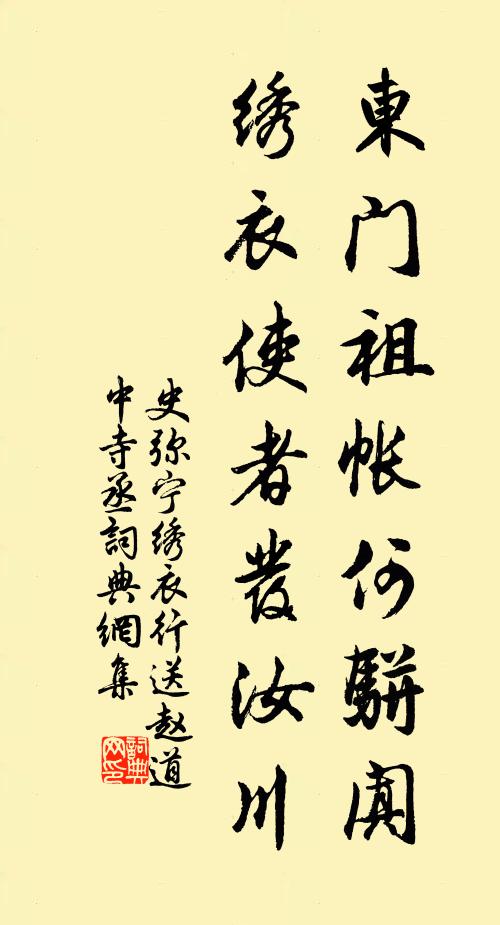 東門祖帳何駢闐
绣衣使者發汝川
史弥宁绣衣行送赵道
中寺丞詞典網集
詞典网印